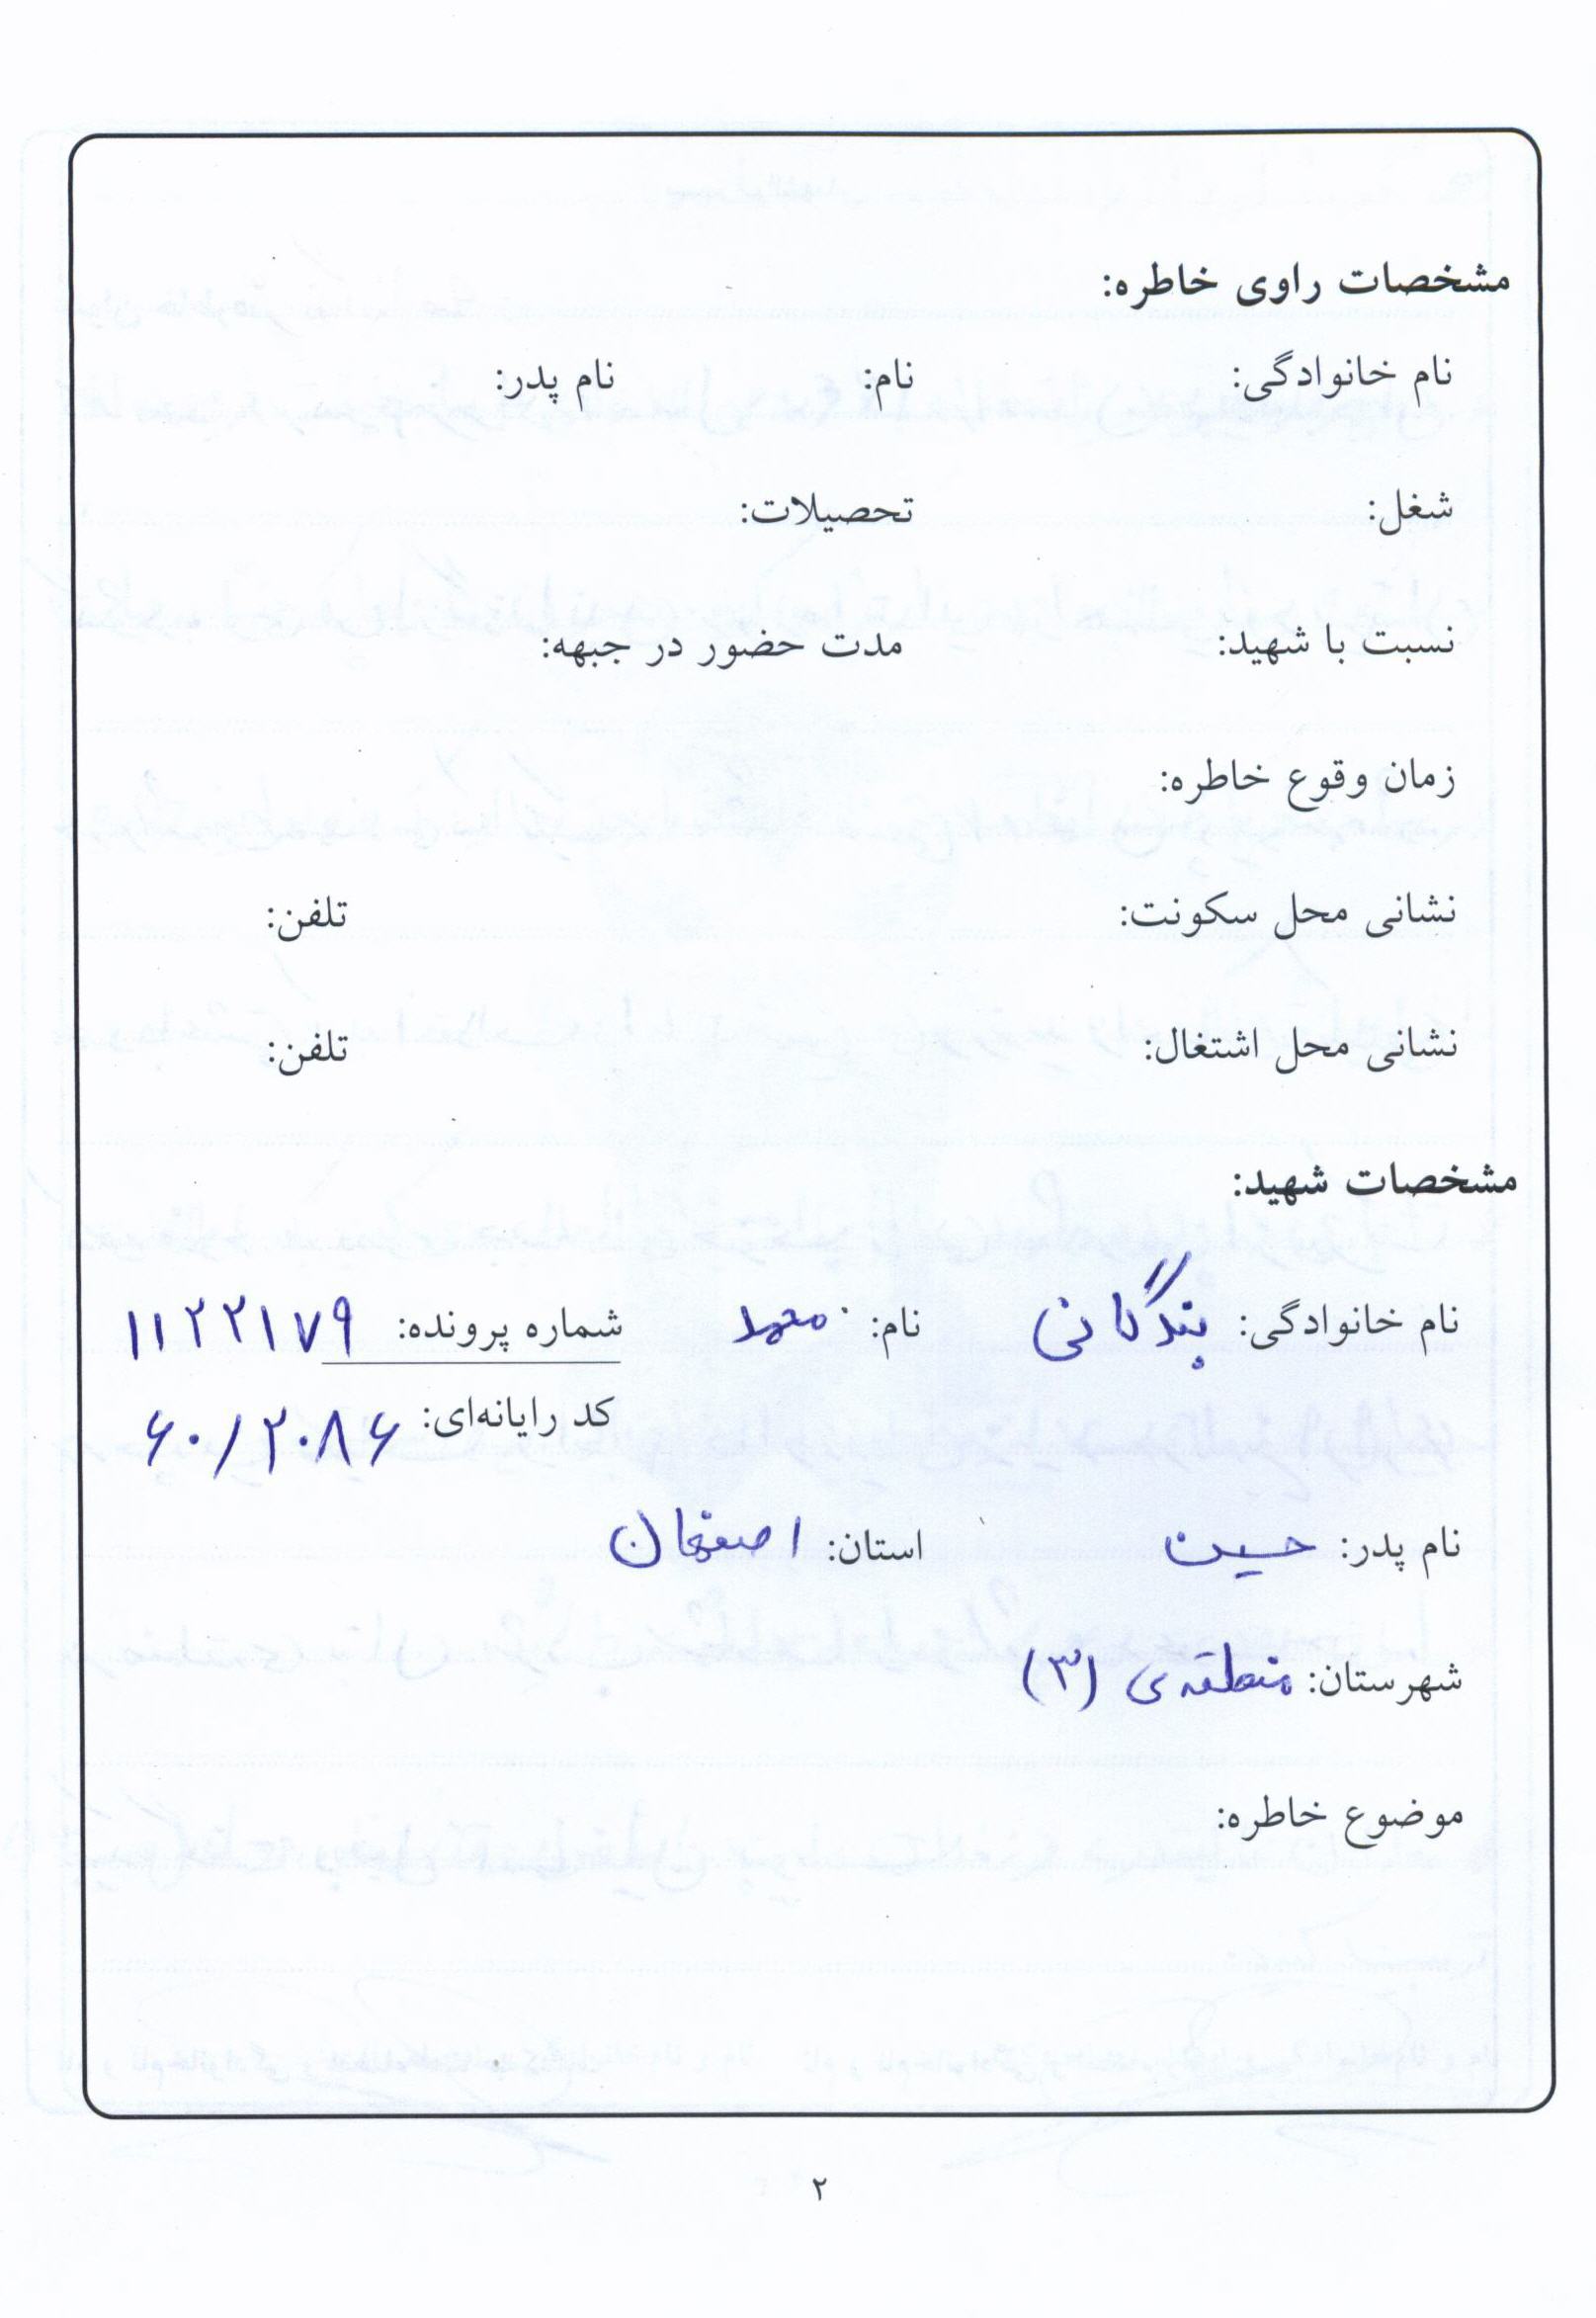 مشخصات راوی خاطره:
نام خانوادگی: نام: نام پدر:
شغل: تحصیلات:
نسبت با شهید: مدت حضور در جبهه:
زمان وقوع خاطره:
نشانی محل سکونت: تلفن:
نشانی محل اشتغال: تلفن:
مشخصات شهید:
نام خانوادگی: بندگانی نام: محمد شماره پرونده: ۱۱۲۲۱۷۹
کد رایانه‌ای: ۶۰/۲۰۸۶
نام پدر: حسین استان: اصفهان
شهرستان: منطقه‌ی (۳)
موضوع خاطره:
۲